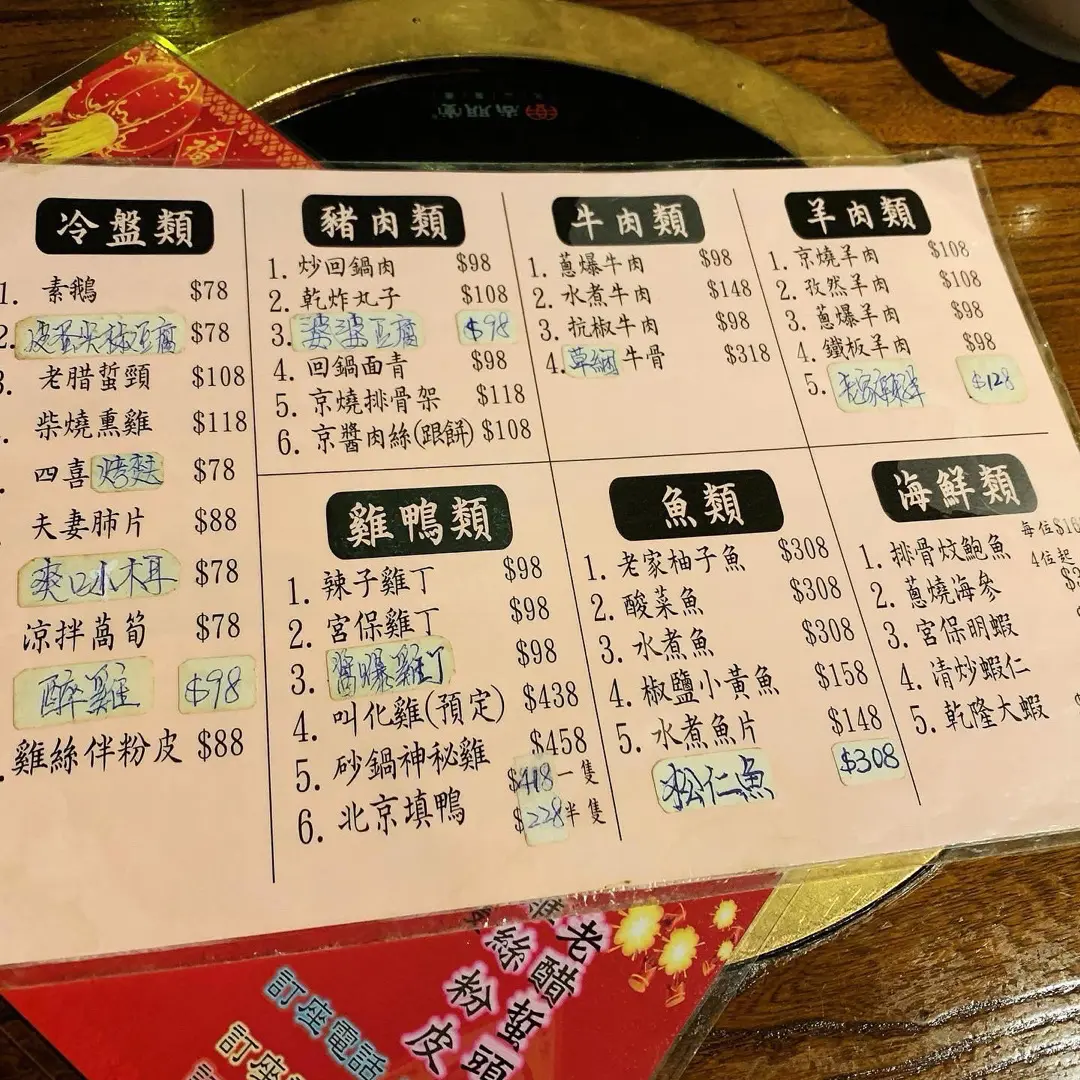 冷盤類
1. 素鵝 $78
2. 皮蛋尖椒豆腐 $78
3. 老腊蜇頸 $108
柴燒熏雞 $118
四喜烤麩 $78
夫妻肺片 $88
爽口小木耳 $78
涼拌萵筍 $78
醉雞 $98
雞絲伴粉皮 $88
豬肉類
1. 炒回鍋肉 $98
2. 乾炸丸子 $108
3. 婆婆豆腐 $98
4. 回鍋面青 $98
5. 京燒排骨架 $118
6. 京醬肉絲(跟餅) $108
牛肉類
1. 蔥爆牛肉 $98
2. 水煮牛肉 $148
3. 抗椒牛肉 $98
4. 草綑牛骨 $318
羊肉類
1. 京燒羊肉 $108
2. 孜然羊肉 $108
3. 蔥爆羊肉 $98
4. 鐵板羊肉 $98
5. 老家辣羊 $128
雞鴨類
1. 辣子雞丁 $98
2. 宮保雞丁 $98
3. 醬爆雞丁 $98
4. 叫化雞(預定) $438
5. 砂鍋神秘雞 $458
6. 北京填鴨 $418一隻
$228半隻
魚類
1. 老家柚子魚 $308
2. 酸菜魚 $308
3. 水煮魚 $308
4. 椒鹽小黃魚 $158
5. 水煮魚片 $148
松仁魚 $308
海鮮類
每位
1. 排骨炆鮑魚 4位起
2. 蔥燒海參
3. 宮保明蝦
4. 清炒蝦仁
5. 乾隆大蝦
老醋蜇頭
絲粉皮
訂座電話
訂座
福
尚朋堂